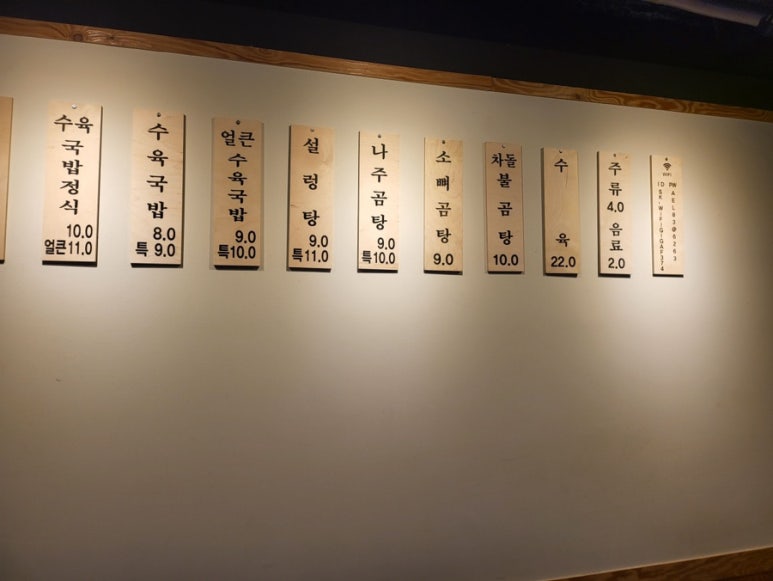 수육
국밥정식
10.0
얼큰11.0
수육국밥
8.0
특 9.0
얼큰
수육국밥
9.0
특10.0
설렁탕
9.0
특11.0
나주곰탕
9.0
특10.0
소뼈곰탕
9.0
차돌
불곰탕
10.0
수육
22.0
주류
4.0
음료
2.0
WIFI
ID
PW